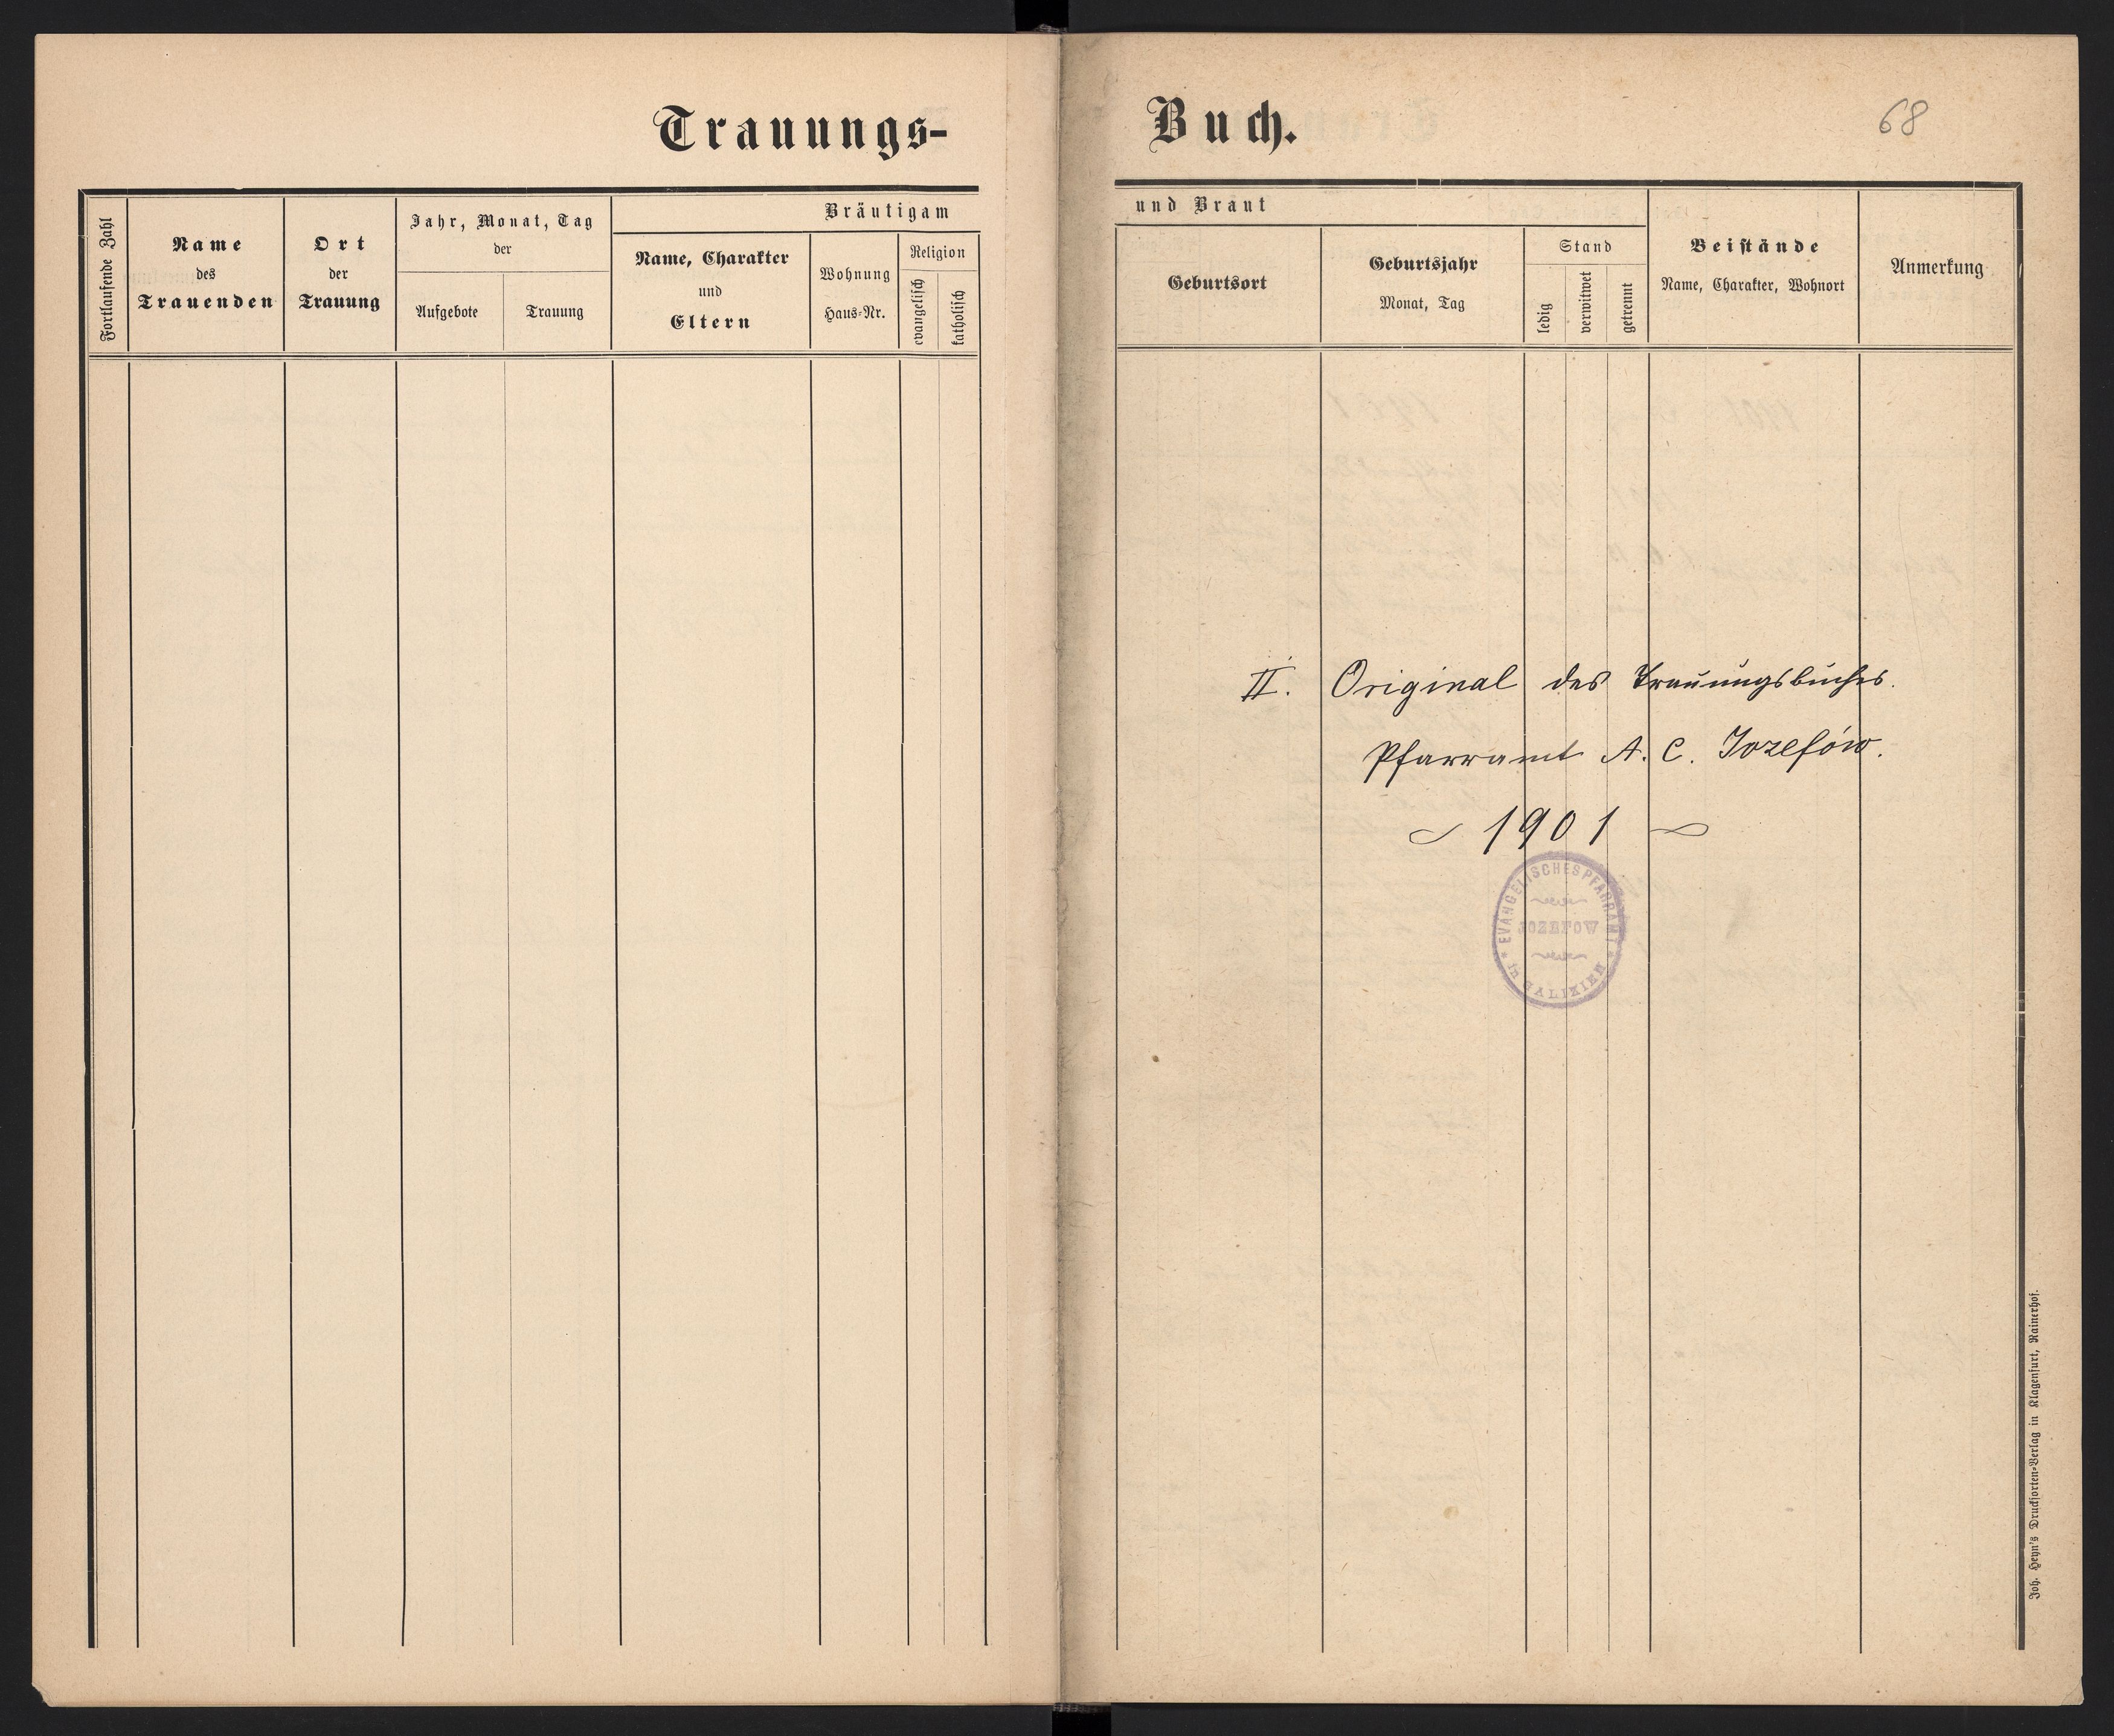 Trauungs-
Buch.
68
Fortlaufende Zahl
Name
des
Trauenden
Ort
der
Trauung
Jahr, Monat, Tag
der
Aufgebote
Trauung
Bräutigam
Name, Charakter
und
Eltern
Wohnung
Haus-Nr.
Religion
evangelisch
katholisch
und Braut
Geburtsort
Geburtsjahr
Monat, Tag
Stand
ledig
verwitwet
getrennt
Beistände
Name, Charakter, Wohnort
Anmerkung
II. Original des Trauungsbuches.
Pfarramt A. C. Jozefów.
1901
EVANGELISCHES PFARRAMT
JOZEFOW
in GALIZIEN
Joh. Heyn's Drucksorten-Verlag in Klagenfurt, Rainerhof.